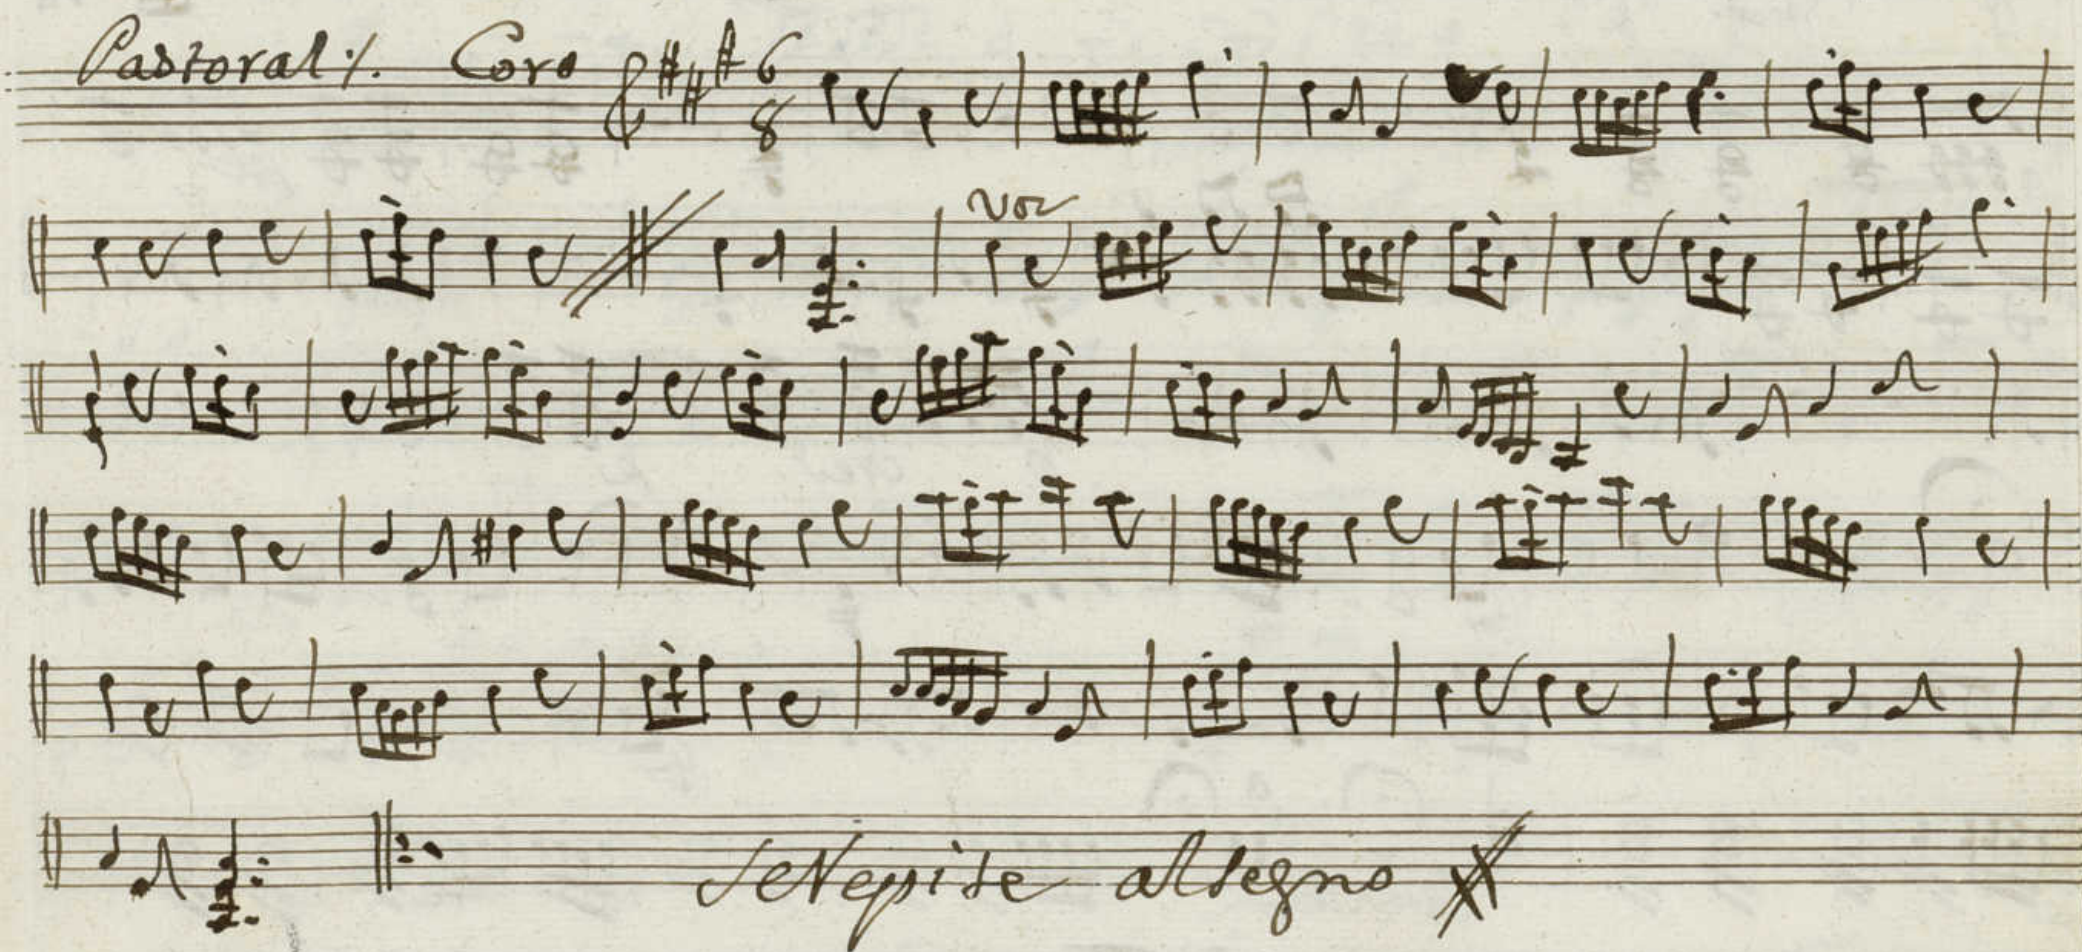 Pastoral ·/. Coro 6 8
voz
se Repite al segno